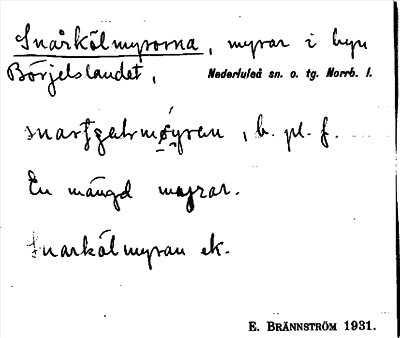 Snårkölmyrorna, myrar i byn
Börjelslandet, Nederluleå sn. o. tg. Norrb. l.
b. pl. f.
En mängd myrar.
Snarkölmyran ek.
E. BRÄNNSTRÖM 1931.